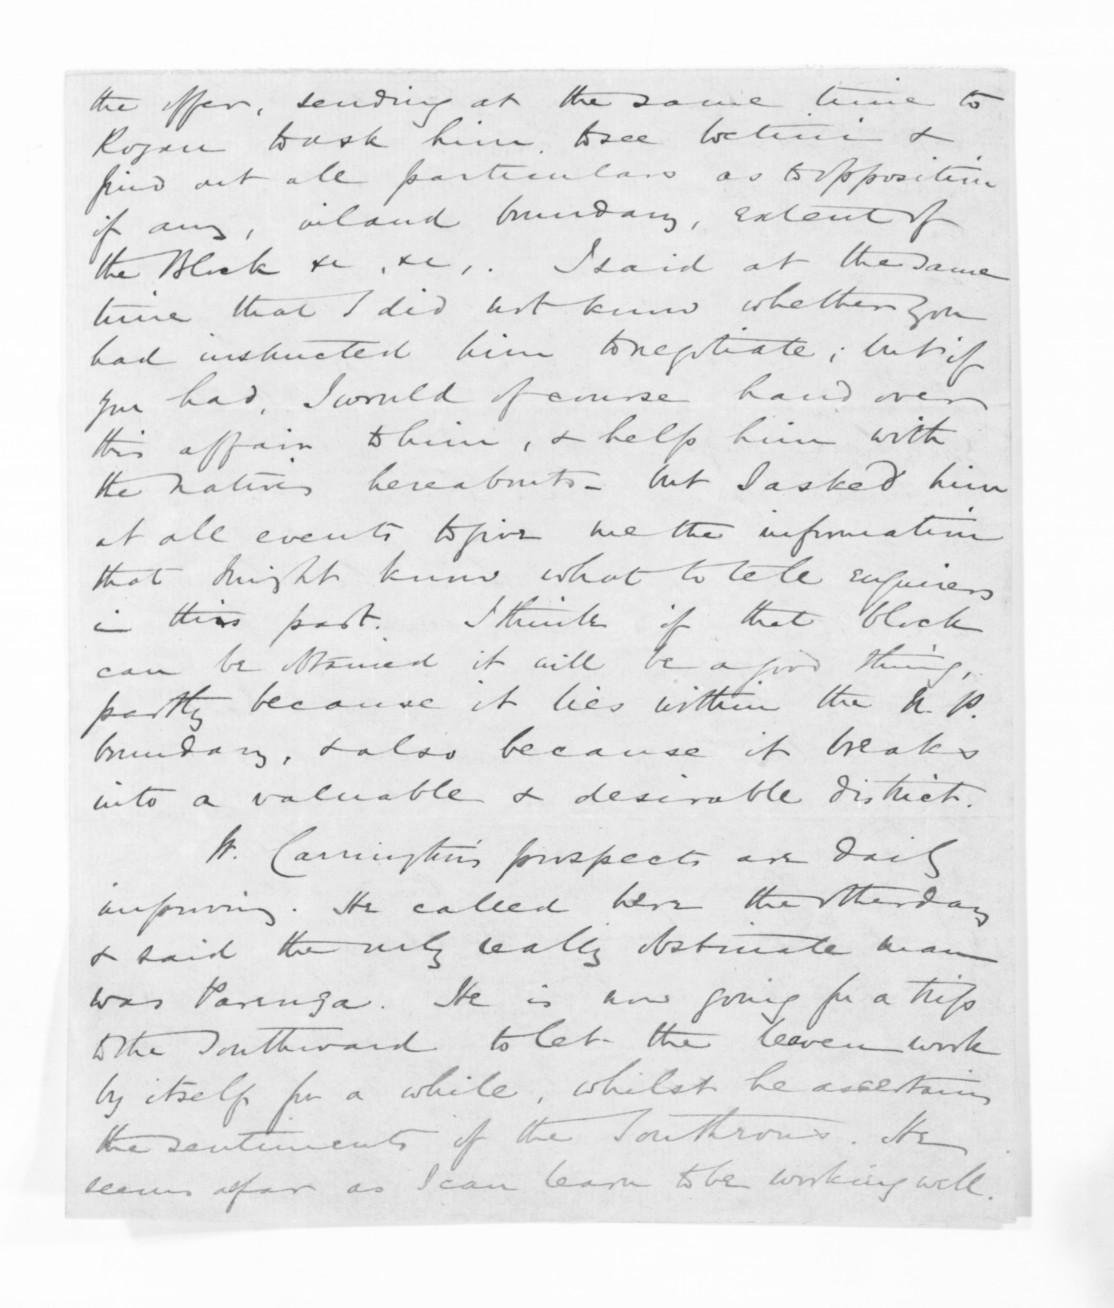 the offer, sending at the same time to
Rogan to ask him to see &
find out all particulars as to opposition
if any, inland boundary, extent of
the Block &c, &c,. I said at the same
time that I did not know whether you
had instructed him to negotiate; but if
you had, I would of course hand over
this affair to him, & help him with
the Natives hereabouts - but I asked him
at all events to give me the information
that I might know what to tell enquirers
in this part. I think if that block
can be obtained it will be a good thing,
partly because it lies within the N. P.
boundary, & also because it breaks
into a valuable & desirable district.
W. Carrington's prospects are daily
improving. He called here the other day
& said the only really obstinate man
was Parenga. He is now going for a trip
to the Southward to let the leaven work
by itself for a while, whilst he ascertains
the sentiments of the Southrons. He
seems as far as I can learn to be working well.